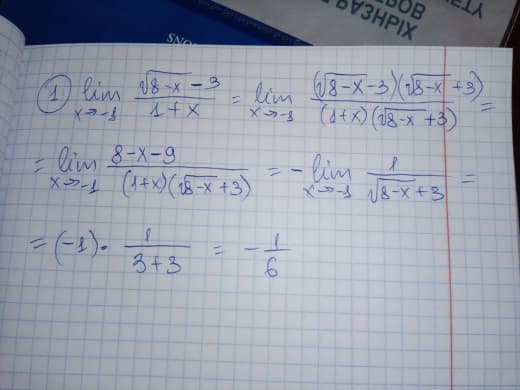 СЕРОВ
РАЗНЫХ
① lim x→-1 (√(8-x) - 3)/(1+x) = lim x→-1 ((√(8-x) - 3)(√(8-x) + 3))/((1+x)(√(8-x) + 3)) =
= lim x→-1 (8-x-9)/((1+x)(√(8-x) + 3)) = - lim x→-1 1/(√(8-x) + 3) =
= (-1) · 1/(3+3) = - 1/6